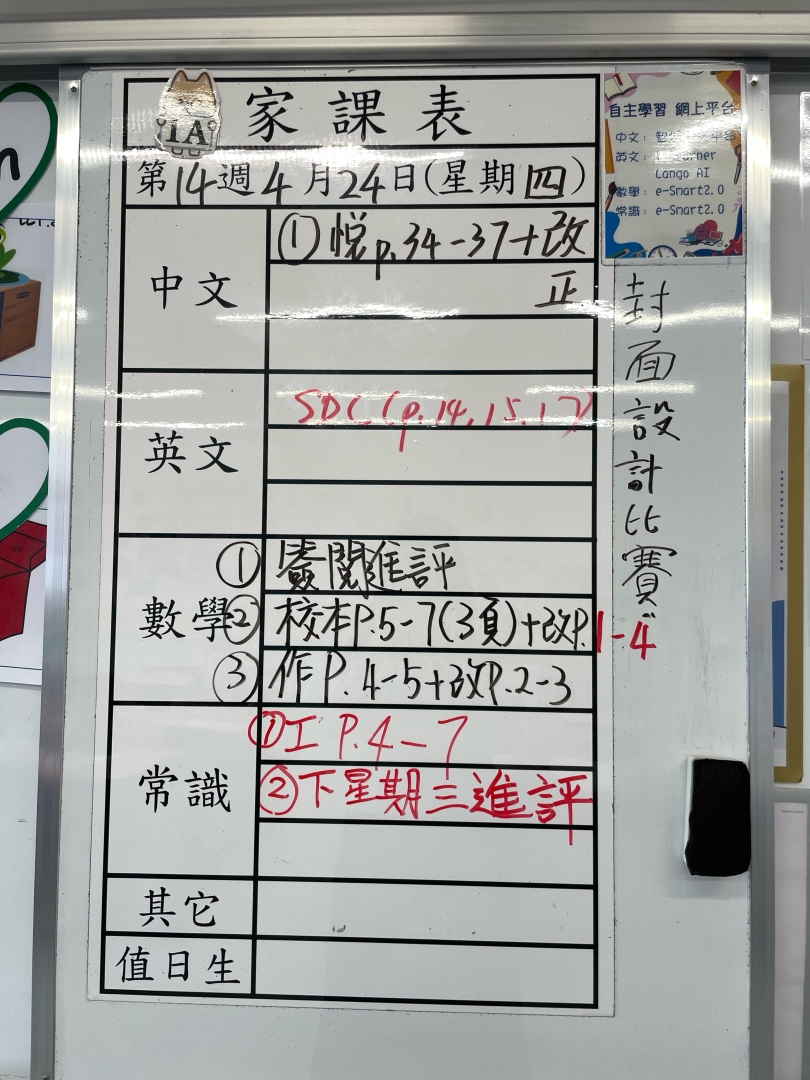 1A
家課表
第14週4月24日(星期四)
中文
①悅p.34-37+改
正
英文
SDC(p.14,15.17)
數學
①簽閱進評
②校本P.5-7(3頁)+改P.1-4
③作P.4-5+改P.2-3
常識
①工P.4-7
②下星期三進評
其它
值日生
自主學習 網上平台
中文:
平台
英文:
Lango AI
數學: e-Smart2.0
常識: e-Smart2.0
封面設計比賽